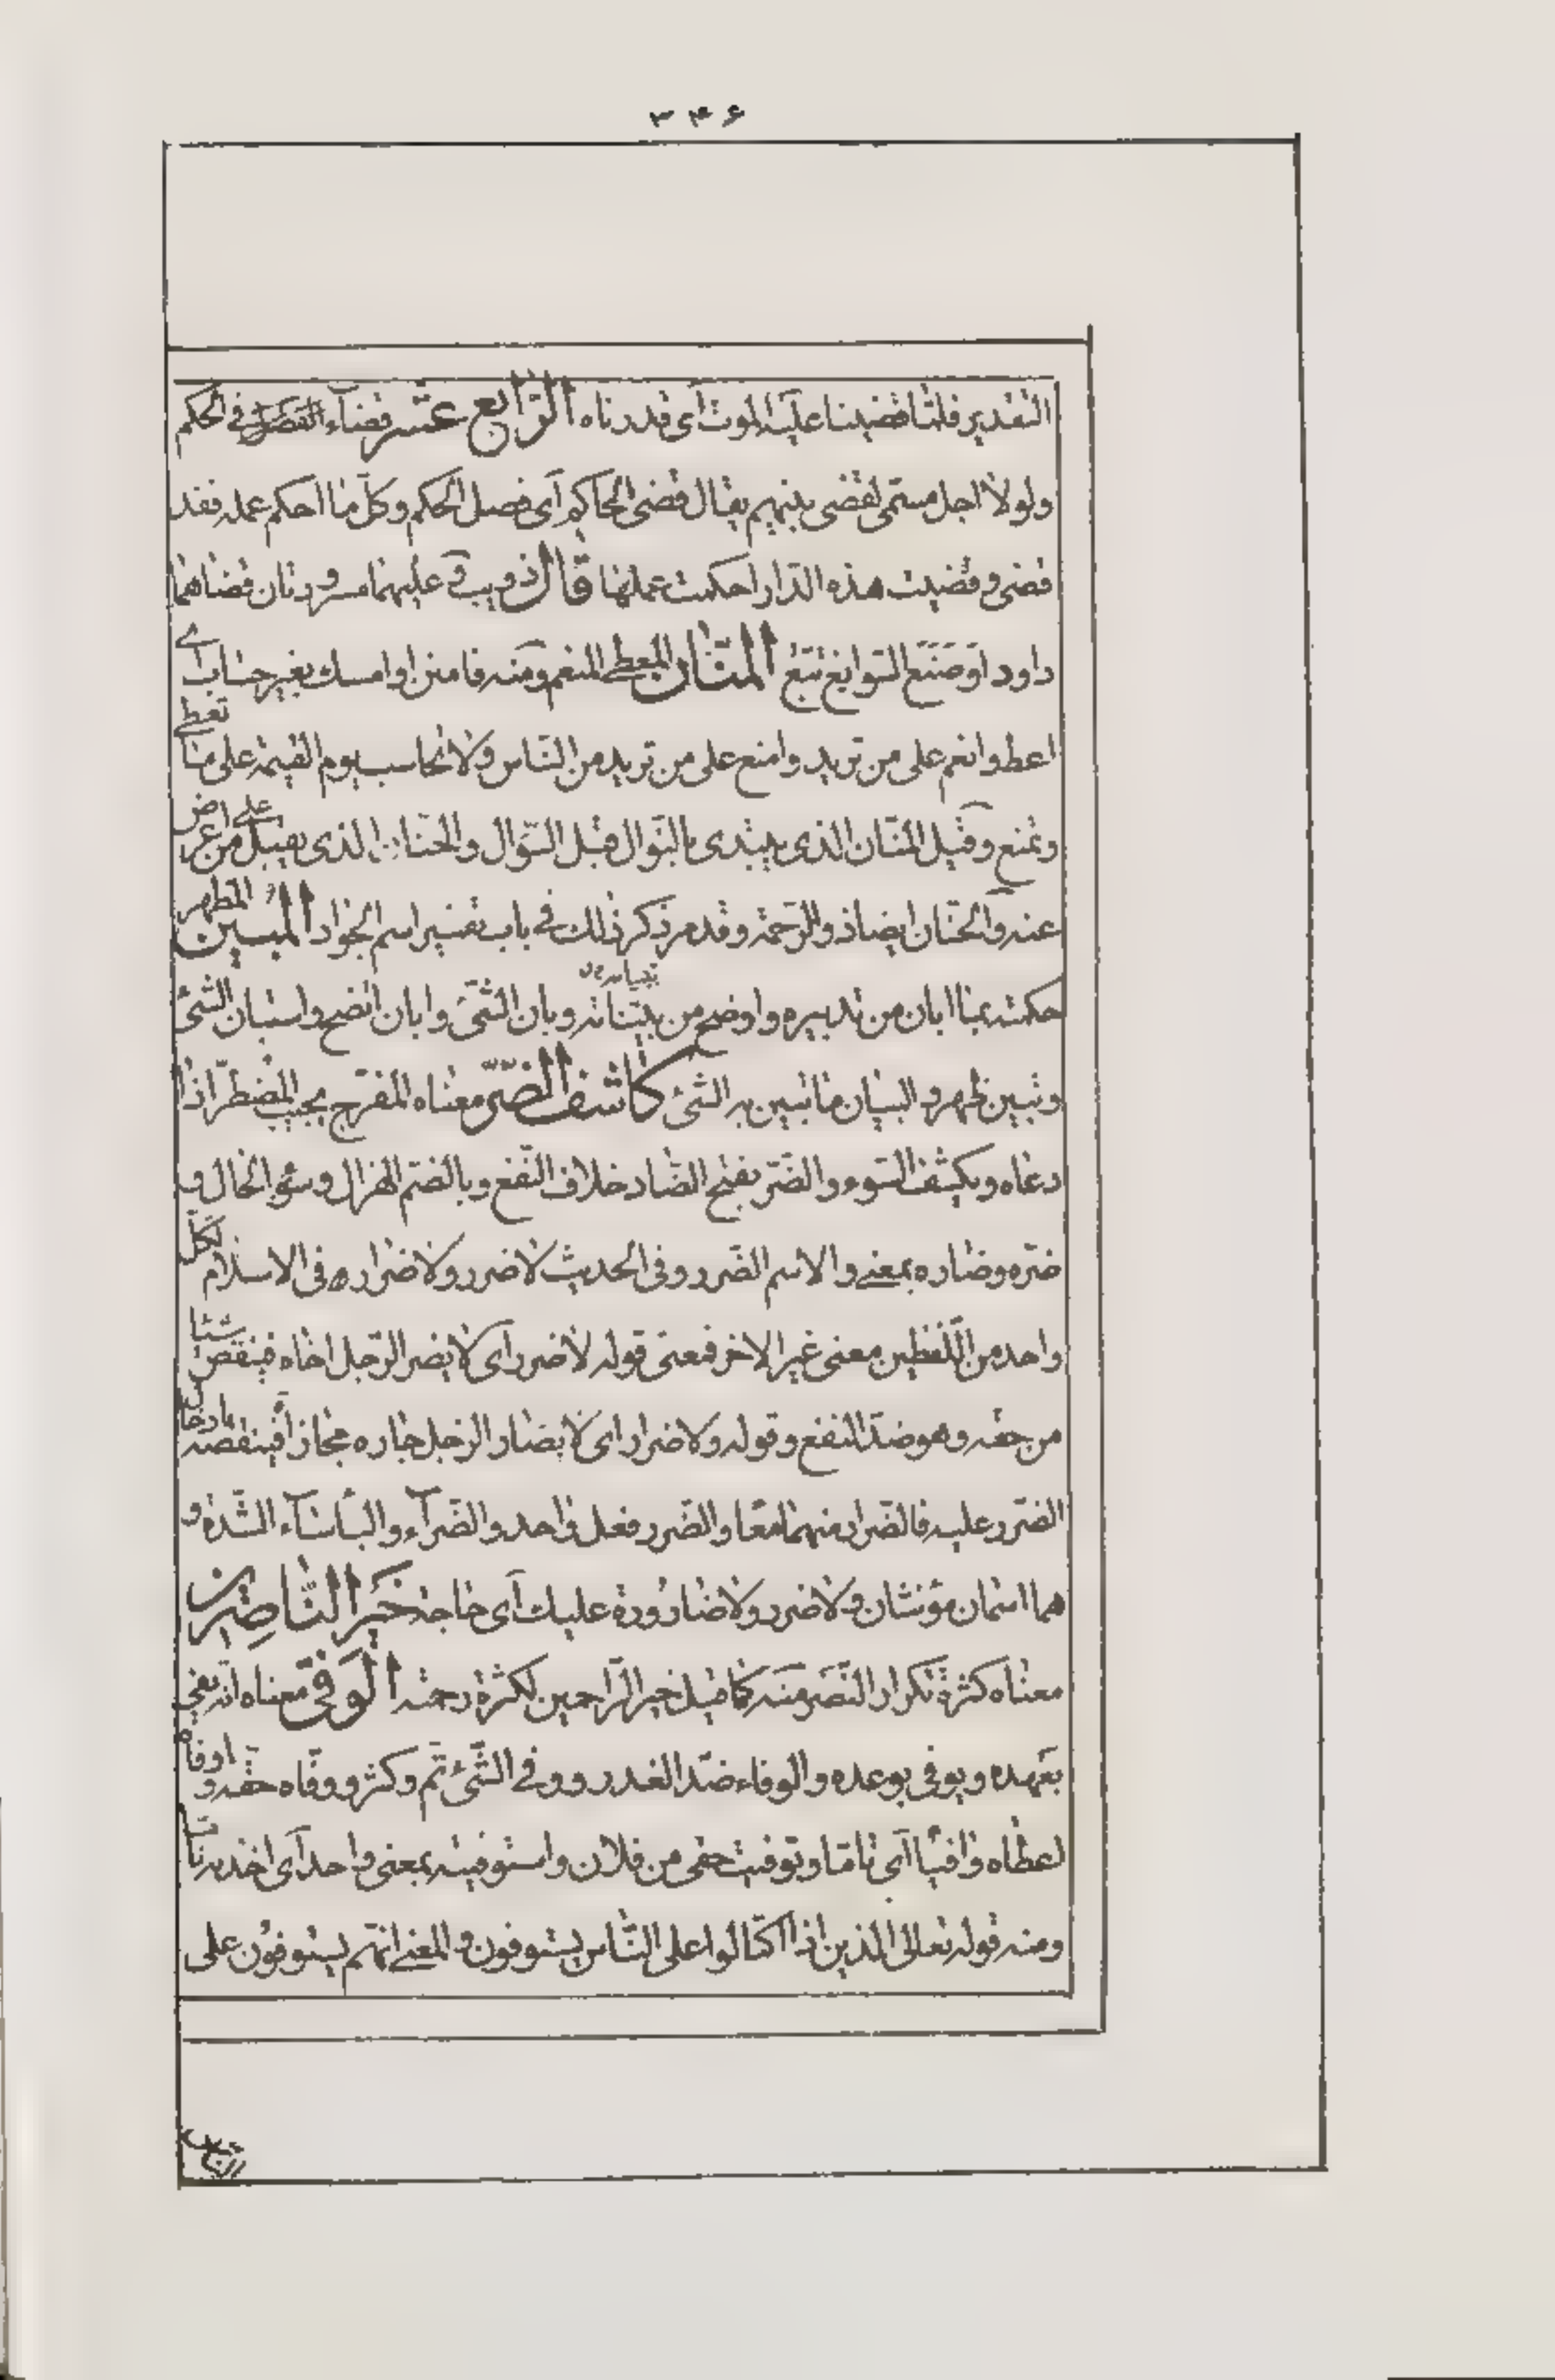 ۳۴۶
التقدير فلمّا قضينا عليه الموت أى قدرناه الرّابع عشر قضآء الفصل فى الحكم
ولولا اجل مسمّى لقضى بينهم يقال قضى الحاكم أى فصل الحكم وكلّ ما احكم عمله فقد
قضى وقضيت هذه الدّار احكمت عملها قال ذويب و عليهما مسرودتان قضاهما
داود او صَنَعُ السّوابغ تبّع المنّان المعطى المنعم ومنه فامنن او امسك بغير حساب اى
اعط وانعم على من تريد وامنع على من تريد من النّاس ولا تحاسب يوم القيمة على ما تعطى
وتمنع وقيل المنّان الذى يبتدى بالنّوال قبل السّؤال والحنّان الذى يقبل على من اعرض
عنه والحنّان ايضا ذو الرّحمة وقد مرّ ذكر ذلك فى باب تفسير اسم الجواد المبين المظهر
حكمته بما ابان من تدبيره واوضح من بيّناته تبيانه وبان الشّئ وابان اتضح واستبان الشّئ
وتبين ظهر والبيان ما تبين به الشّئ كاشف الضّرّ معناه المفرّج يجيب المضطرّ اذا
دعاه ويكشف السّوء والضّرّ بفتح الضّاد خلاف النّفع وبالضّم الهزال وسوء الحال و
ضرّه وضاره بمعنى والاسم الضّرر وفى الحديث لا ضرر ولا ضرار فى الاسلام لكلّ
واحد من اللّفظين معنى غير الاخر فمعنى قوله لا ضرر اى لا يضر الرّجل اخاه فينقص شيئا
من حقّه وهو ضدّ النفع وقوله ولا ضرار اى لا يضار الرّجل جاره مجازاً فينقصه بادخال
الضّرر عليه فالضّرار منهما معًا والضّرر فعل واحد والضّرآء والبأسآء الشّدة و
هما اسمان مؤنثان ولا ضرر ولا ضارورة عليك أى حاجة خير النّاصرين
معناه كثرة تكرار النّصر منه كما قيل خير الرّاحمين لكثرة رحمته الوفىّ معناه انّه يفى
بعهده ويوفى بوعده والوفاء ضدّ الغدر ووفى الشّئ تمّ وكثر ووفّاه حقّه و اوفاه
اعطاه وافيًا أى تامّا وتوفيت حقى من فلان واستوفيته بمعنى واحد أى اخذته تامّا
ومنه قوله تعالى الذين اذا اكتالوا على النّاس يستوفون والمعنى انهم يستوفون على